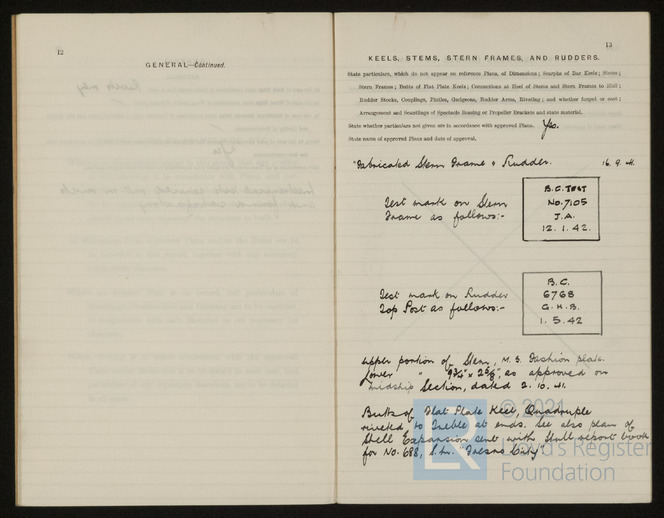 12
GENERAL—Continued.
13
KEELS, STEMS, STERN FRAMES, AND RUDDERS.
State particulars, which do not appear on reference Plans, of Dimensions; Scarphs of Bar Keels; Stems;
Stern Frames; Butts of Flat Plate Keels; Connections at Heel of Stems and Stern Frames to Hull;
Rudder Stocks, Couplings, Pintles, Gudgeons, Rudder Arms, Riveting; and whether forged or cast;
Arrangement and Scantlings of Spectacle Bossing or Propeller Brackets and state material.
State whether particulars not given are in accordance with approved Plans. Yes.
State name of approved Plans and date of approval.
"Fabricated Stern Frame & Rudder. 16. 9. 41.
Test mark on Stern
Frame as follows:-
B.C. TEST
No. 7105
J.A.
12. 1. 42.
Test mark on Rudder
Top Post as follows:-
B.C.
6768
G.H.B.
1. 5. 42
Upper portion of Stem, M.S. Fashion plate.
Lower " as approved on
midship Section, dated 2. 10. 41.
Butts of Flat Plate Keel, Quadruple
riveted to Treble at ends. See also plan of
Shell Expansion sent with Hull report book
for No. 688, S.M. "Fresno City"
© 2021
LR
Lloyd's Register
Foundation